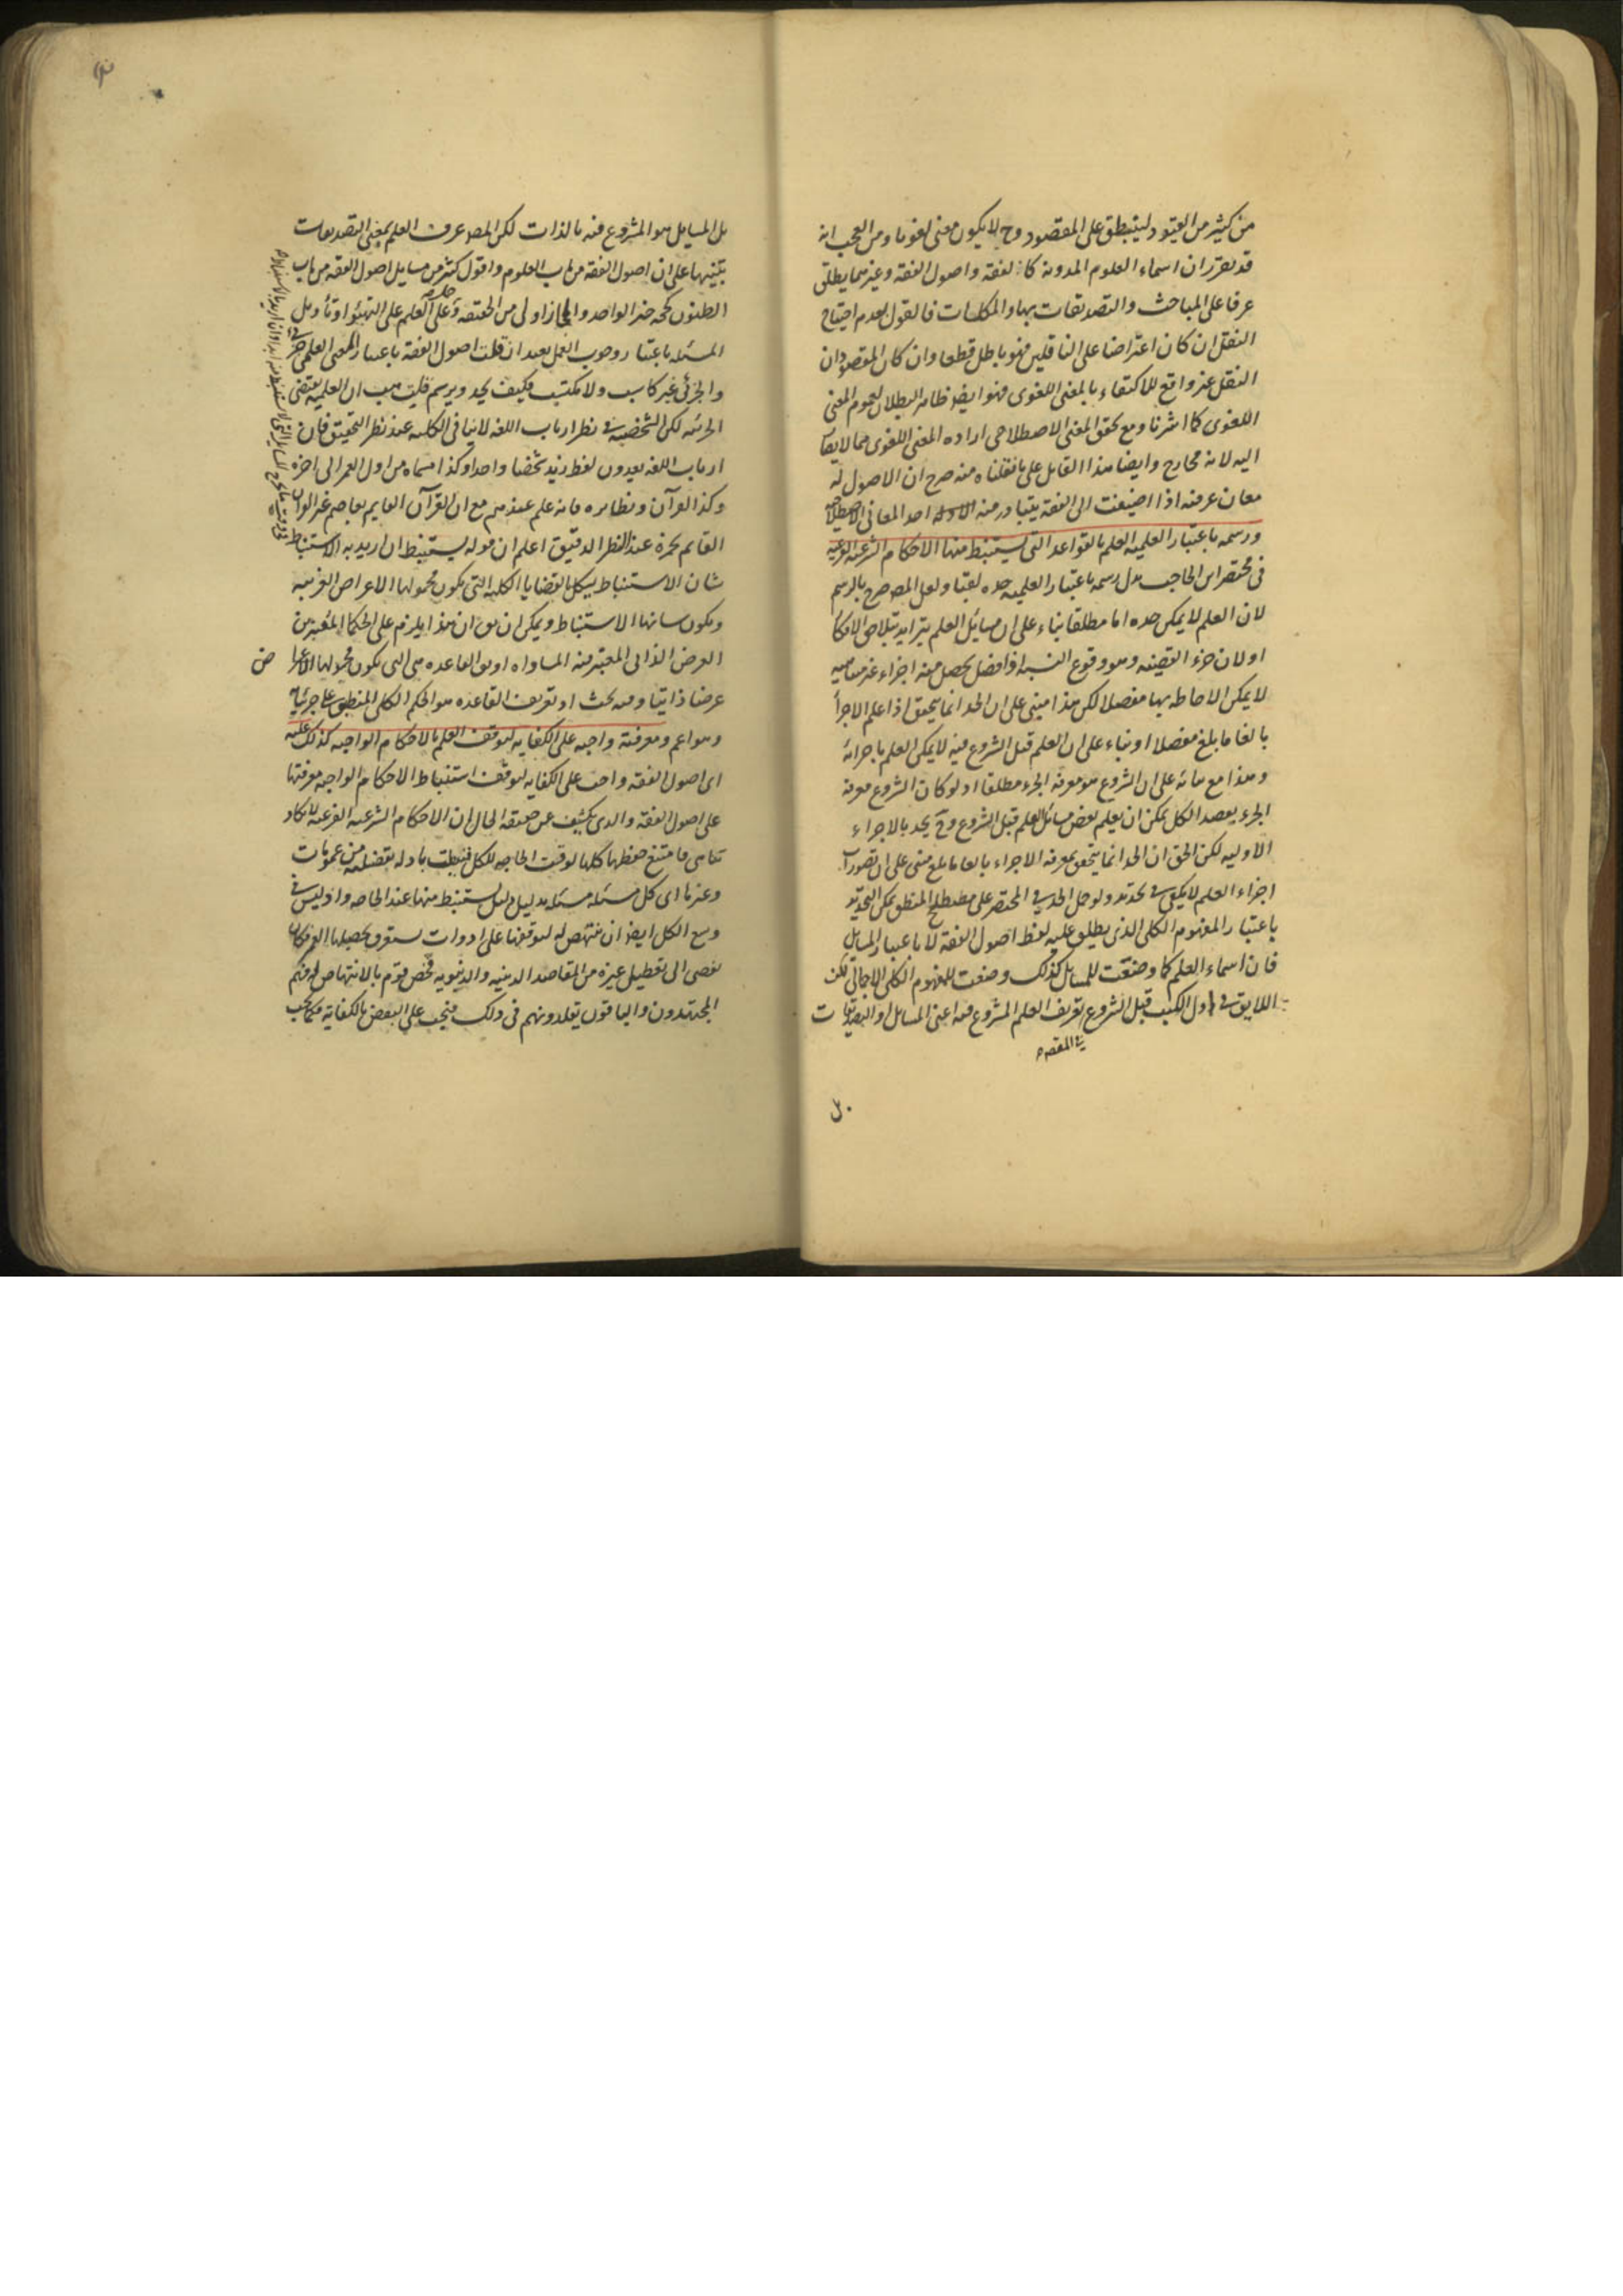 من كثير من القيود لينطبق على المقصود وح لا يكون معنى لغويا ومن العجب انه
قد تقرر ان اسماء العلوم المدونة كالفقه واصول الفقه وغيرهما يطلق
عرفا على المباحث والتصديقات بها والملكات فالقول بعدم احتياج
النقل ان كان اعتراضا على الناقلين فهو باطل قطعا وان كان المقصود ان
النقل غير واقع للاكتفاء بالمعنى اللغوى فهو ايضا ظاهر البطلان لعموم المعنى
اللغوى كما اشرنا ومع تحقق المعنى الاصطلاحى اراده المعنى اللغوى مما لا يصار
اليه لانه وايضا هذا القايل على ما نقلناه منه صرح ان الاصول له
معان عرفية اذا اضيفت الى الفقه يتبادر منه احد المعانى الاصطلاحية
ورسمه باعتبار العلمية العلم بالقواعد التى يستنبط منها الاحكام الشرعية الفرعية
فى مختصر ابن الحاجب بدل رسمه باعتبار العلمية حده لقبا ولعل المص صرح بالرسم
لان العلم لا يمكن حده اما مطلقا بناء على ان مسائل العلم يتزايد بتلاحق الافكار
او لان جزء القضية وهو وقوع النسبة اذا فصل يحصل منه اجزاء غير متناهيه
لا يمكن الاحاطه بها مفصلا لكن هذا مبنى على ان الحد انما يتحقق اذا علم الاجزاء
بالغا ما بلغ مفصلا او بناء على ان العلم قبل الشروع فيه لا يمكن العلم باجزائه
وهذا مع بنائه على ان الشروع هو معرفة الجزء مطلقا اذ لو كان الشروع معرفة
الجزء بقصد الكل يمكن ان يعلم بعض مسائل العلم قبل الشروع وح يحد بالاجزاء
الاوليه لكن الحق ان الحد انما يتحقق بمعرفة الاجزاء بالغا ما بلغ مبنى على ان تصورات
اجزاء العلم لا يكفى فى تحديده ولو حمل الحد فى المختصر على مصطلح المنطق يمكن التحديد
باعتبار المفهوم الكلى الذى يطلق عليه لفظ اصول الفقه لا باعتبار المسايل
فان اسماء العلم كما وضعت للمسايل كذلك وضعت للمفهوم الكلى الاجمالى لكن
اللايق فى اول الكتب قبل الشروع تعريف العلم المشروع فيه اعنى المسايل او التصديقات
فى المقصد
بل المسايل هو المشروع فيه بالذات لكن المص عرف العلم بمعنى التصديقات
تنبيها على ان اصول الفقه من باب العلوم واقول كثير من مسايل اصول الفقه من باب
الظنون كحجه خبر الواحد والمجاز اولى من الحقيقة وحمله على العلم على التهيؤ او تأويل
المسئله باعتبار وجوب العمل بعيد ان قلت اصول الفقه باعتبار المعنى العلمى جزئى
والجزئى غير كاسب ولا مكتسب فكيف يحد ويرسم قلت هب ان العلمية يقتضى
الجزئيه لكن الشخصية فى نظر ارباب اللغه لا ينافى الكلية عند نظر التحقيق فان
ارباب اللغه يعدون لفظ زيد شخصا واحدا وكذا مسماه من اول العمر الى اخره
وكذا القرآن ونظايره فانه علم عندهم مع ان القرآن القايم بعاصم غير القرآن
القايم بحمزة عند النظر الدقيق اعلم ان قوله يستنبط ان اريد به الاستنباط
شان الاستنباط يشكل بالقضايا الكلية التى يكون محمولها الاعراض الغريبه
ويكون شانها الاستنباط ويمكن ان يق ان هذا يلزم على الحكما المعتبرين
العرض الذاتى المعتبر فيه المساواه او يق القاعده هى التى يكون محمولها الاعراض
عرضا ذاتيا وفيه بحث اذ تعريف القاعده هو الحكم الكلى المنطبق على جزئياته
وهو اعم ومعرفته واجبه على الكفايه لتوقف العلم بالاحكام الواجبه كذلك عليه
اى اصول الفقه واجب على الكفايه لتوقف استنباط الاحكام الواجبه معرفتها
على اصول الفقه والذى يكشف عن حقيقه الحال ان الاحكام الشرعيه الفرعية لا تكاد
تتناهى فامتنع حفظها كلها لوقت الحاجه للكل فنيطت بادله تفصيلية من عمومات
وغيرها اى كل مسئله مسئله بدليل دليل ليستنبط منها عند الحاجه واذ ليس فى
وسع الكل ايضا ان ينتهض له لتوقفها على ادوات يستغرق تحصيلها العمر وكان
يفضى الى تعطيل غيره من المقاصد الدينيه والدنيويه فخص قوم بالانتهاض له وهم
المجتهدون والباقون يقلدونهم فى ذلك فيجب على البعض بالكفاية فكما يجب